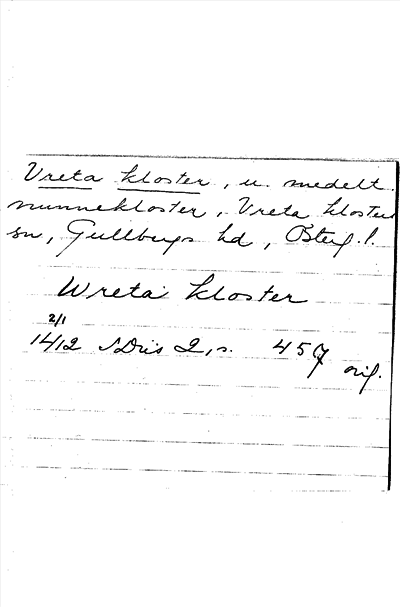 Vreta kloster, u. medelt.
nunnekloster, Vreta kloster
sn, Gullbergs hd, Östg. l.
Wreta kloster
2/1
14/12 SDns 2, s. 457
orig.